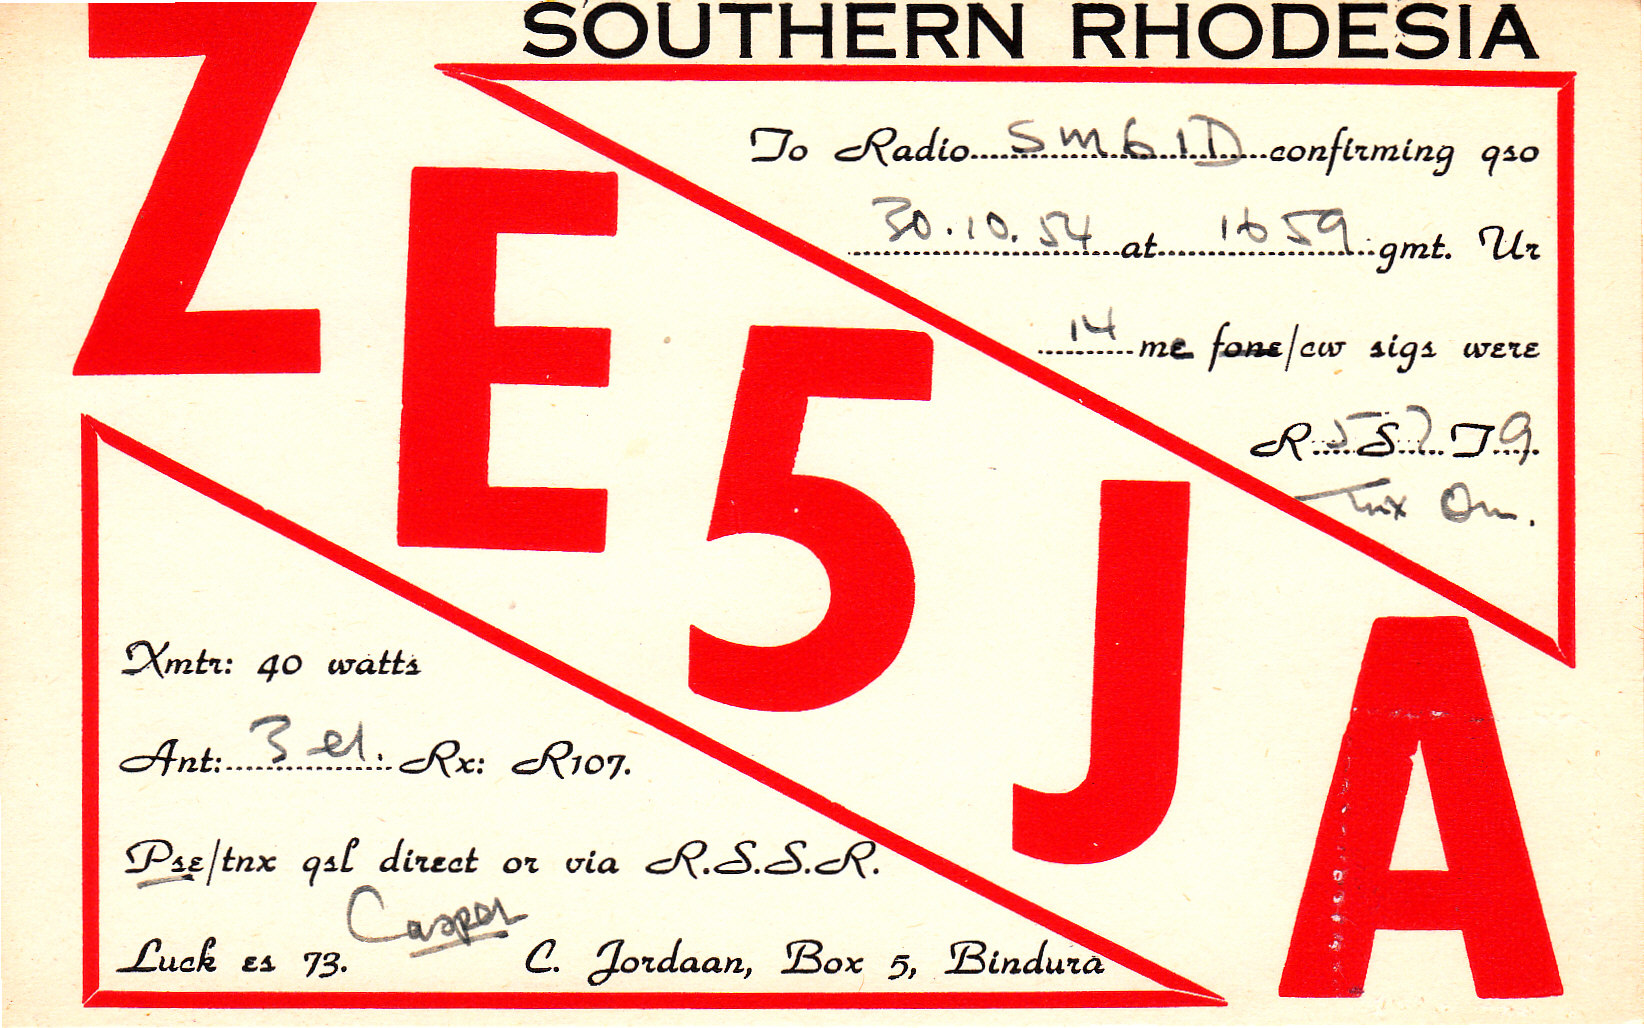 SOUTHERN RHODESIA
ZE5JA
To Radio SM6ID confirming qso
30.10.54 at 1659 gmt. Ur
14 mc fone/cw sigs were
R 5 S 7 T 9
Tnx Om.
Xmtr: 40 watts
Ant: 3 el. Rx: R107.
Pse/tnx qsl direct or via R.S.S.R.
Casper
Luck es 73. C. Jordaan, Box 5, Bindura